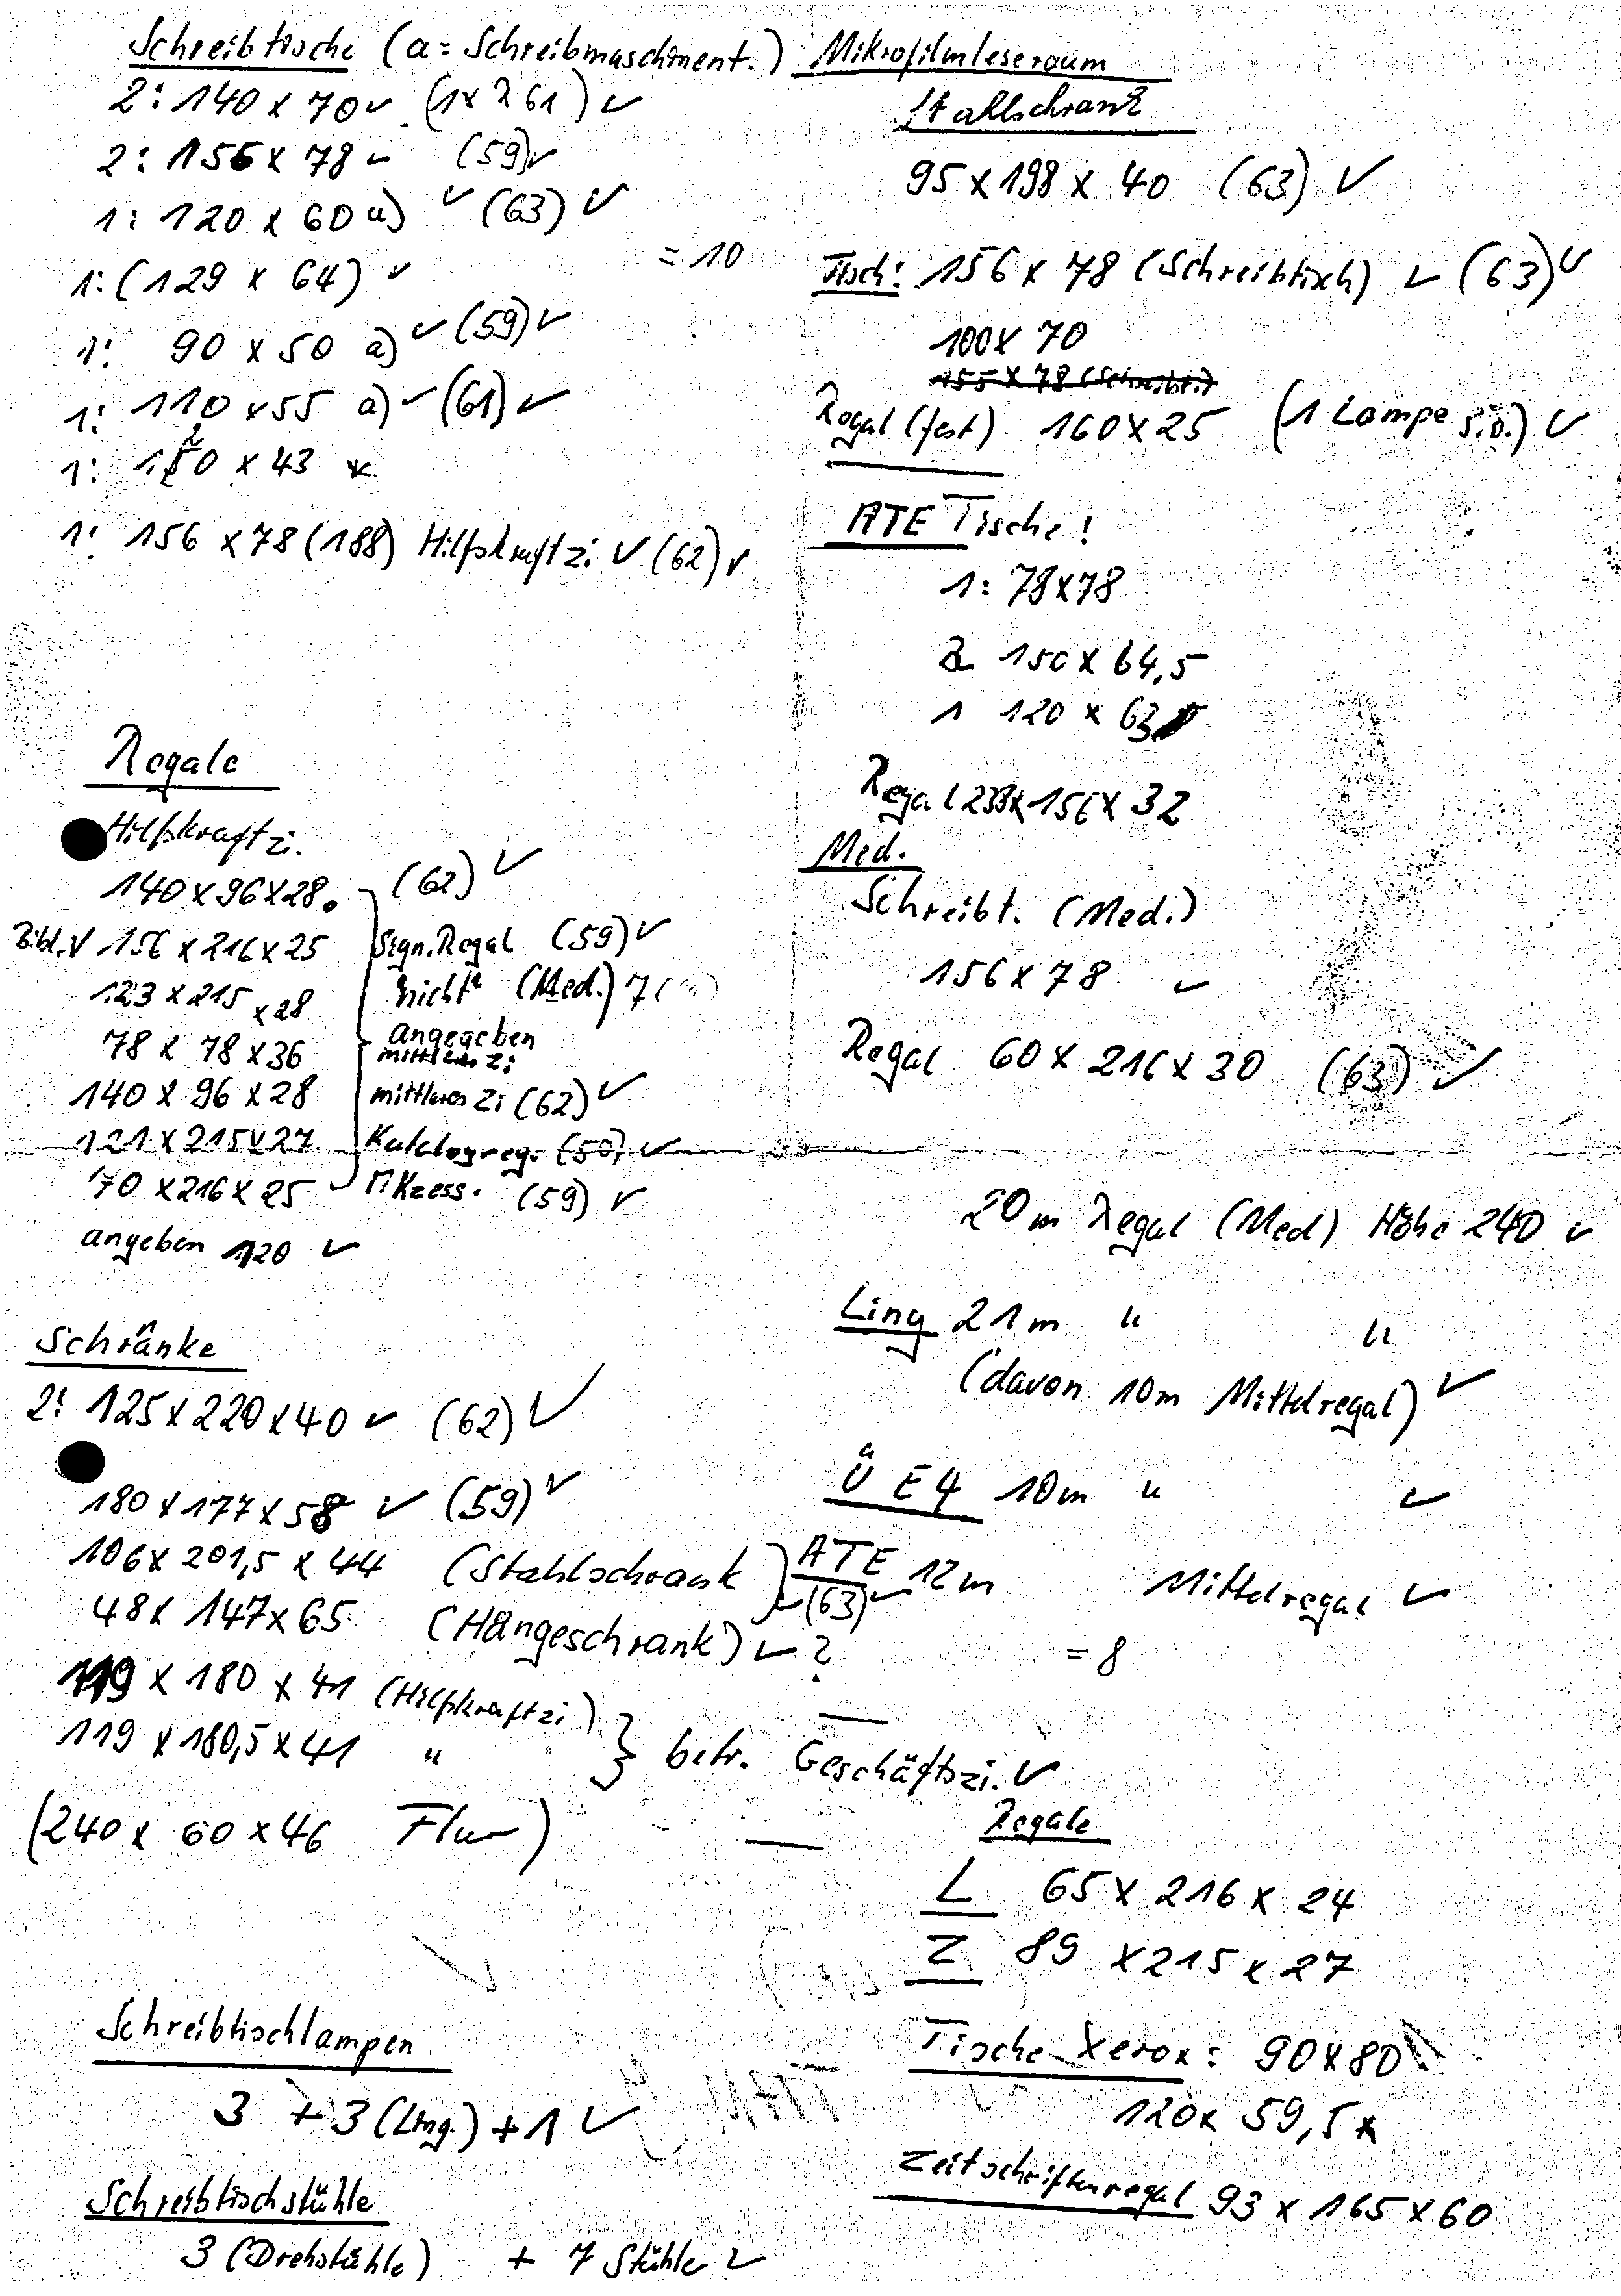 Schreibtische (a = Schreibmaschinent.)
2: 140 x 70 ✓ (1x 261) ✓
2: 156 x 78 ✓ (59) ✓
1: 120 x 60 a) ✓ (63) ✓
= 10
1: (129 x 64) ✓
1: 90 x 50 a) ✓ (59) ✓
1: 110 x 55 a) ✓ (61) ✓
1: 120 x 43 x
1: 156 x 78 (188) Hilfskraftzi ✓ (62) ✓
Regale
Hilfskraftzi.
140 x 96 x 28 (62) ✓
Bibl. V 156 x 216 x 25 Sign. Regal (59) ✓
123 x 215 x 28 nicht (Med.)
angegeben
78 x 78 x 36 mittleres Zi
140 x 96 x 28 mittleres Zi (62) ✓
121 x 215 x 27 Katalogreg. (59) ✓
70 x 216 x 25 Akzess. (59) ✓
angeben 120 ✓
Schränke
2: 125 x 220 x 40 ✓ (62) ✓
180 x 177 x 58 ✓ (59) ✓
106 x 201,5 x 44 (Stahlschrank) ✓ (63) ✓
48 x 147 x 65 (Hängeschrank) ✓ ?
119 x 180 x 41 (Hilfskraftzi)
119 x 180,5 x 41 " } betr. Geschäftszi. ✓
(240 x 60 x 46 Flur)
Schreibtischlampen
3 + 3 (Ling.) + 1 ✓
Schreibtischstühle
3 (Drehstühle) + 7 Stühle ✓
Mikrofilmleseraum
Stahlschrank
95 x 198 x 40 (63) ✓
Tisch: 156 x 78 (Schreibtisch) ✓ (63) ✓
100 x 70
155 x 78 (Schreibt.)
Regal (fest) 160 x 25 (1 Lampe s.o.) ✓
ATE Tische!
1: 78 x 78
2 150 x 64,5
1 120 x 63
Regal 239 x 156 x 32
Med.
Schreibt. (Med.)
156 x 78 ✓
Regal 60 x 216 x 30 (63) ✓
20 m Regal (Med) Höhe 240 ✓
Ling 21 m " "
(davon 10m Mittelregal) ✓
Ü E4 10m " ✓
ATE 12 m Mittelregal ✓
= 8
Regale
L 65 x 216 x 24
Z 89 x 215 x 27
Tische Xerox: 90 x 80
120 x 59,5 x
Zeitschriftenregal 93 x 165 x 60